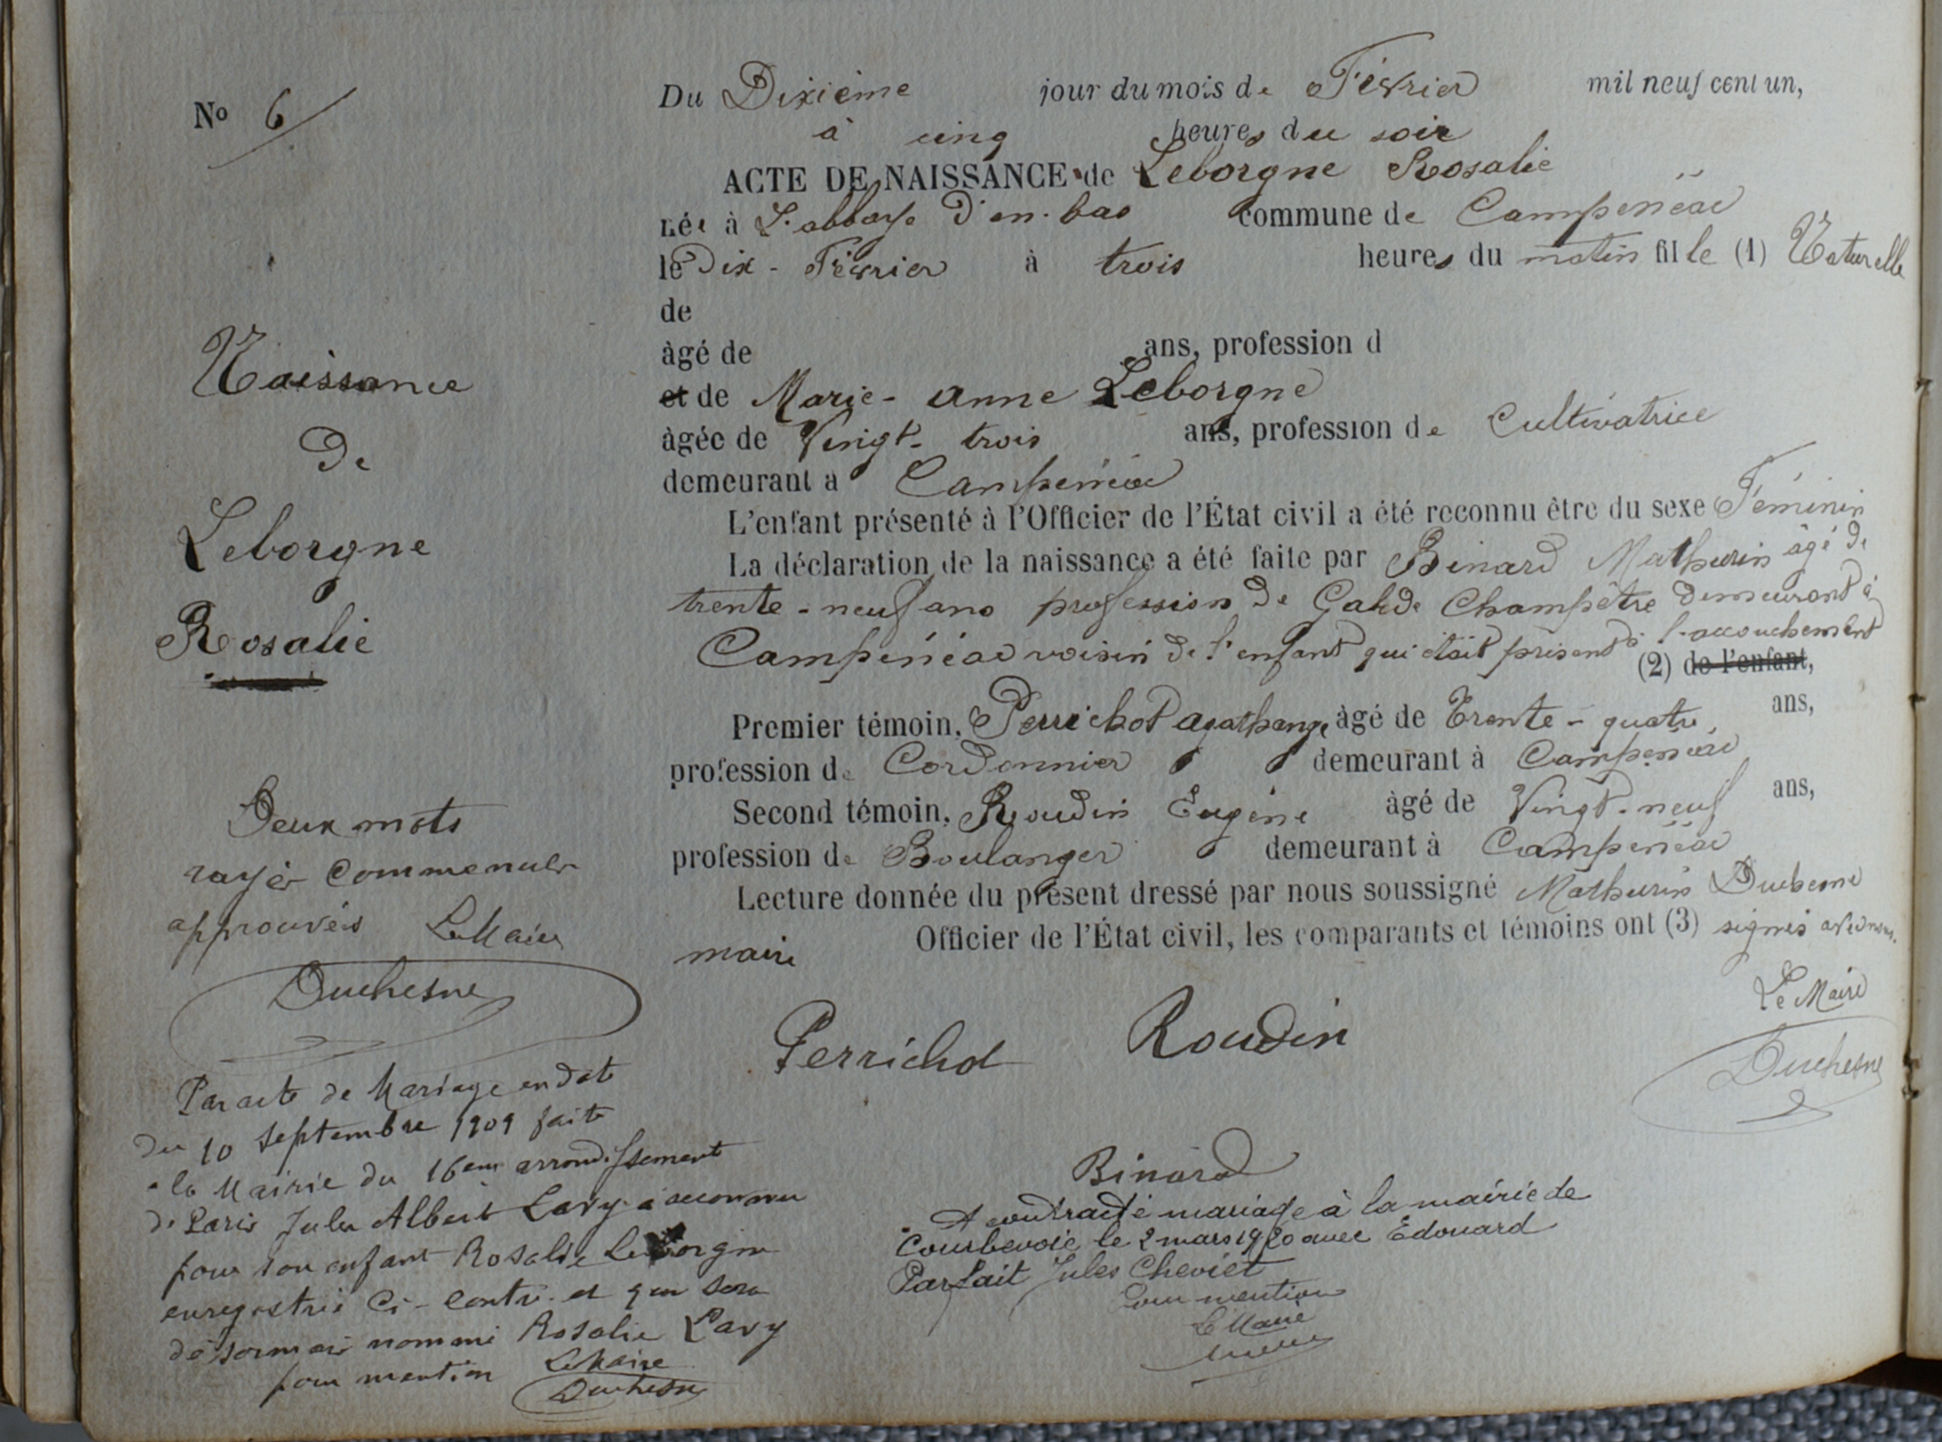 No 6
Du Dixième jour du mois de Février mil neuf cent un,
à cinq heures du soir
ACTE DE NAISSANCE de Leborgne Rosalie
née à L'abbaye d'en-bas commune de Campénéac
le Dix-Février à trois heures du matin fille (1) Naturelle
de
âgé de ans, profession d
et de Marie-Anne Leborgne
âgée de Vingt-trois ans, profession de Cultivatrice
demeurant à Campénéac
L'enfant présenté à l'Officier de l'État civil a été reconnu être du sexe Féminin
La déclaration de la naissance a été faite par Binard Mathurin âgé de
trente-neuf ans profession de Garde Champêtre demeurant à
Campénéac voisin de l'enfant qui était présent à l'accouchement
(2) de l'enfant,
Premier témoin, Perrichot Agathange âgé de Trente-quatre ans,
profession de Cordonnier demeurant à Campénéac
Second témoin, Roudin Eugène âgé de Vingt-neuf ans,
profession de Boulanger demeurant à Campénéac
Lecture donnée du présent dressé par nous soussigné Mathurin Duchesne
maire Officier de l'État civil, les comparants et témoins ont (3) signés avec nous.
Le Maire
Duchesne
Perrichot Roudin
Binard
Naissance
De
Leborgne
Rosalie
Deux mots
rayés comme nuls
approuvés Le Maire
Duchesne
Par acte de Mariage en date
du 10 Septembre 1909 fait
à la Mairie du 16eme arrondissement
de Paris Jules Albert Lavy a reconnu
pour son enfant Rosalie Leborgne
enregistrée Ci-Contre et qui sera
désormais nommé Rosalie Lavy
pour mention Le Maire
Duchesne
A contracté mariage à la mairie de
Courbevoie le 2 mars 1920 avec Edouard
Parfait Jules Cheviet
Pour mention
Le Maire